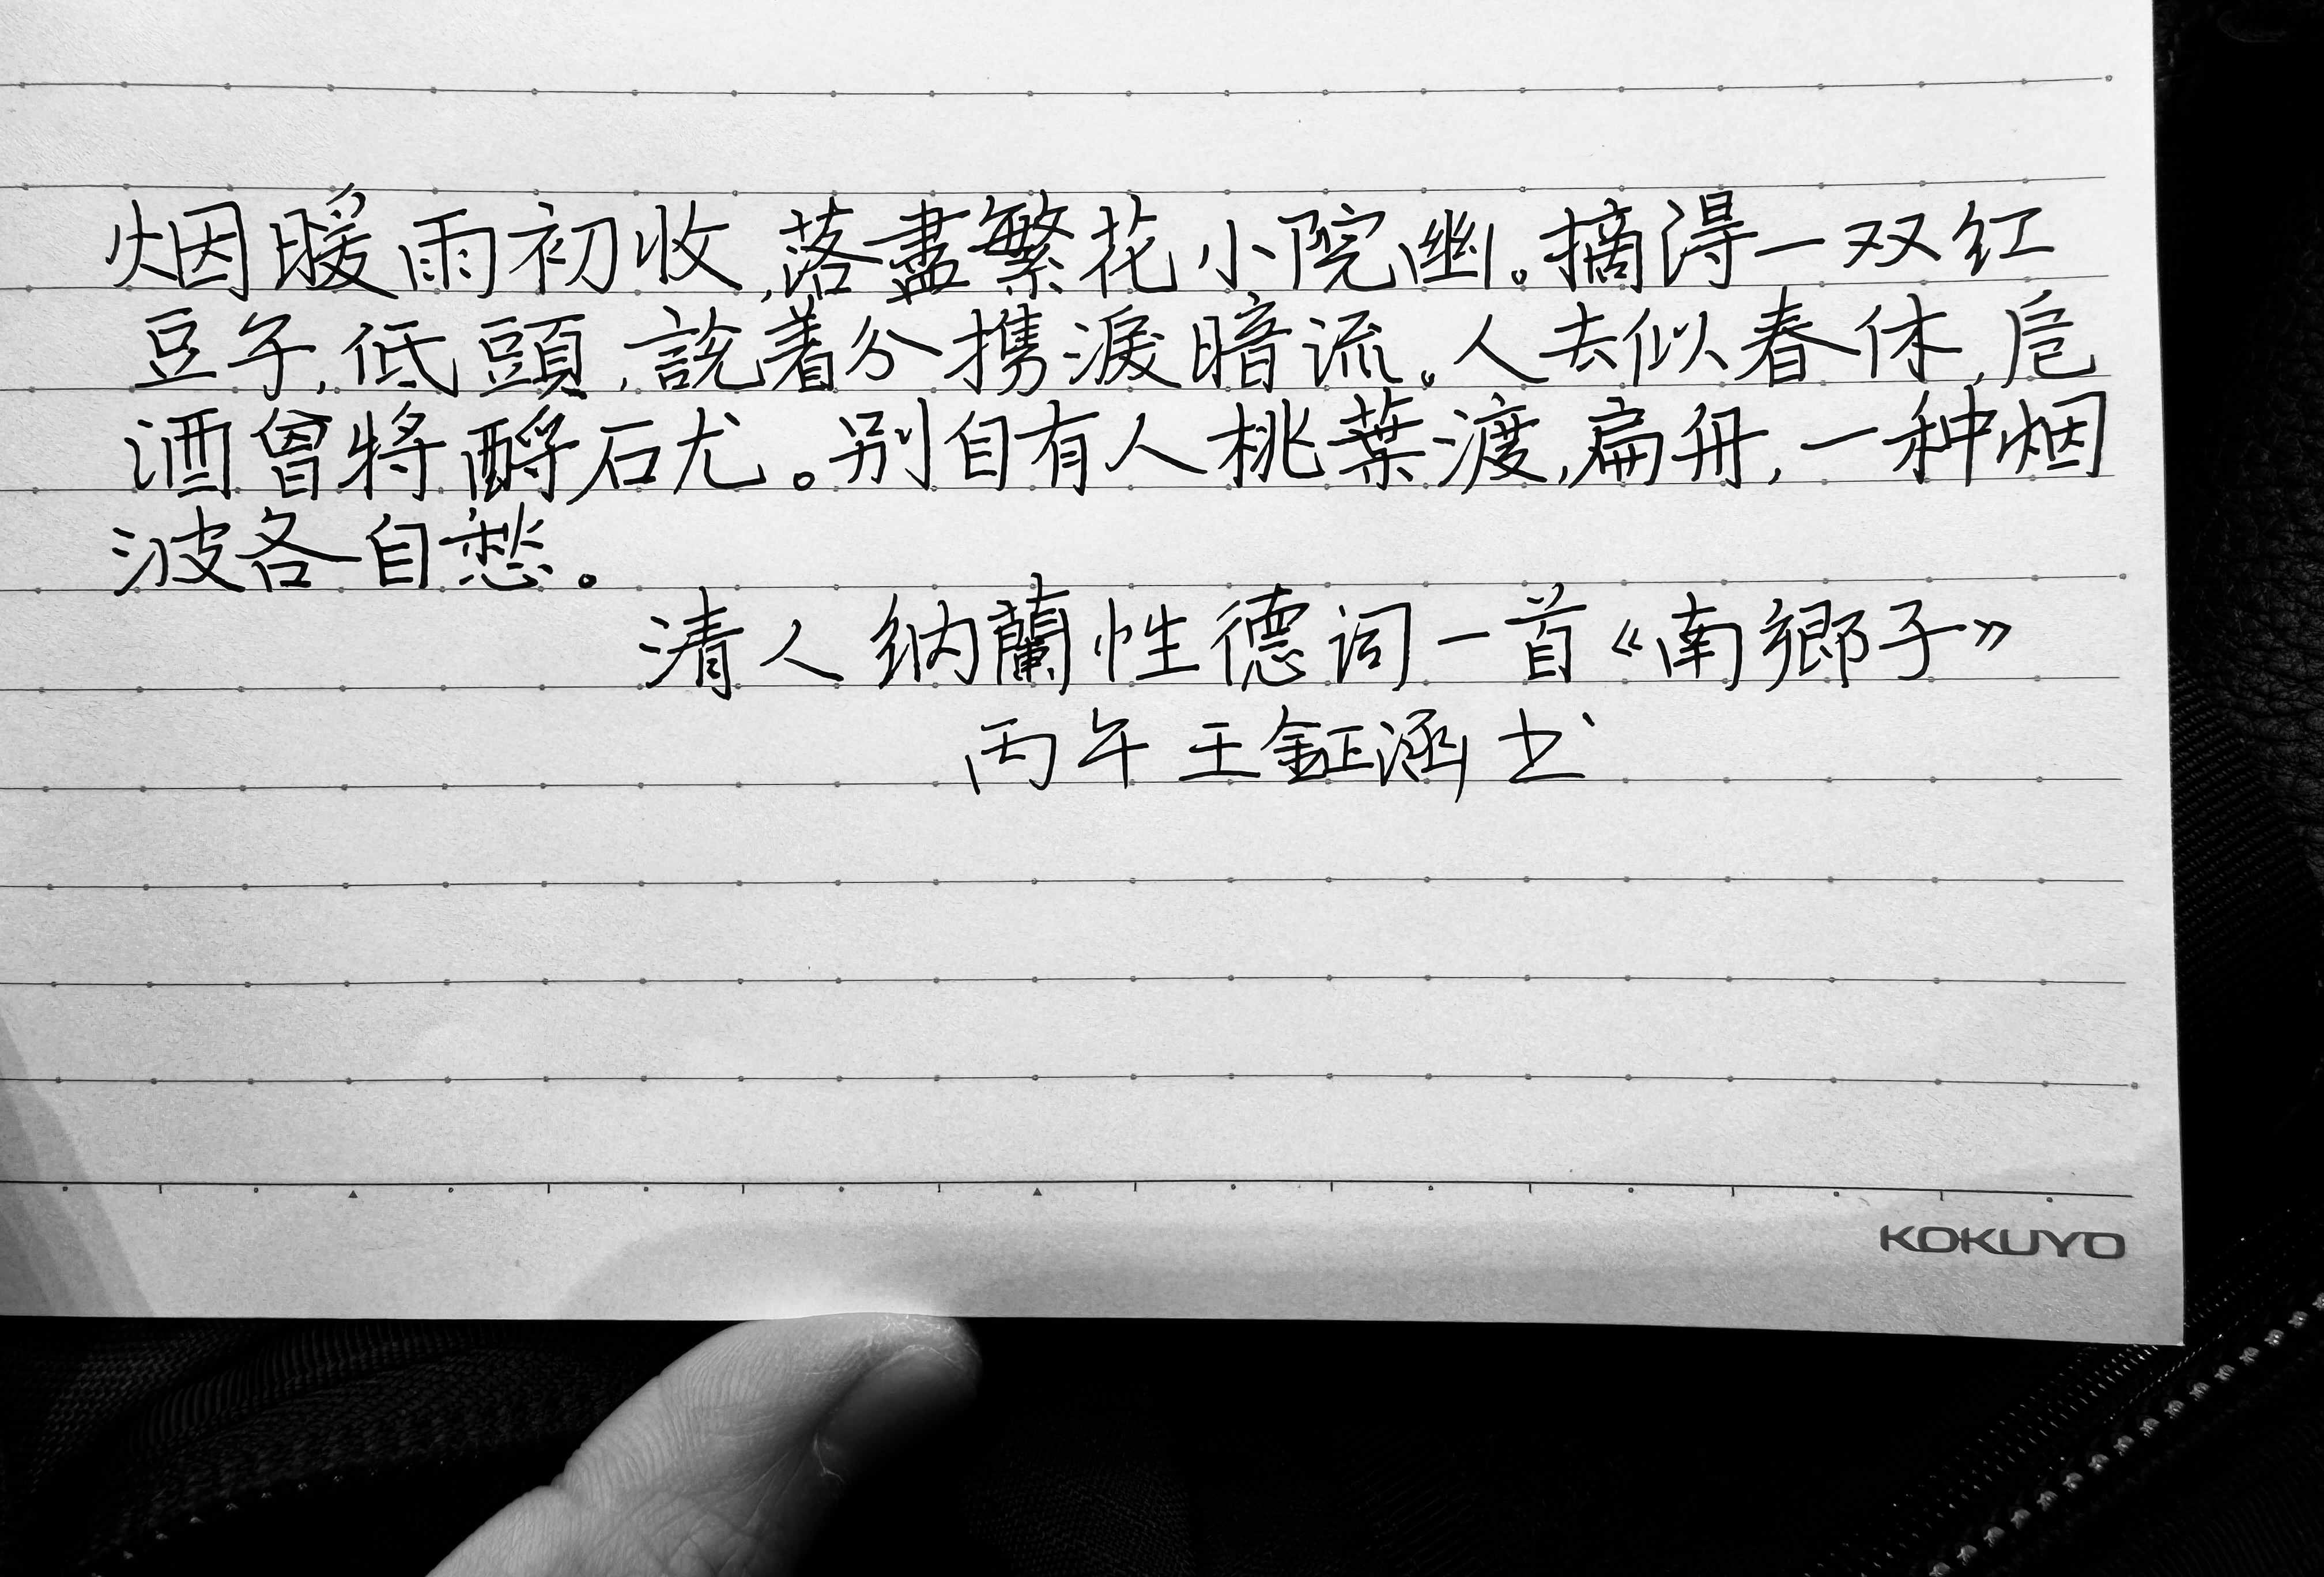 烟暖雨初收,落盡繁花小院幽。摘得一双红
豆子,低頭,説着分携淚暗流。人去似春休,卮
酒曾将酹石尤。别自有人桃葉渡,扁舟,一种烟
波各自愁。
清人纳蘭性德词一首《南鄉子》
丙午 王鉦涵 书
KOKUYO